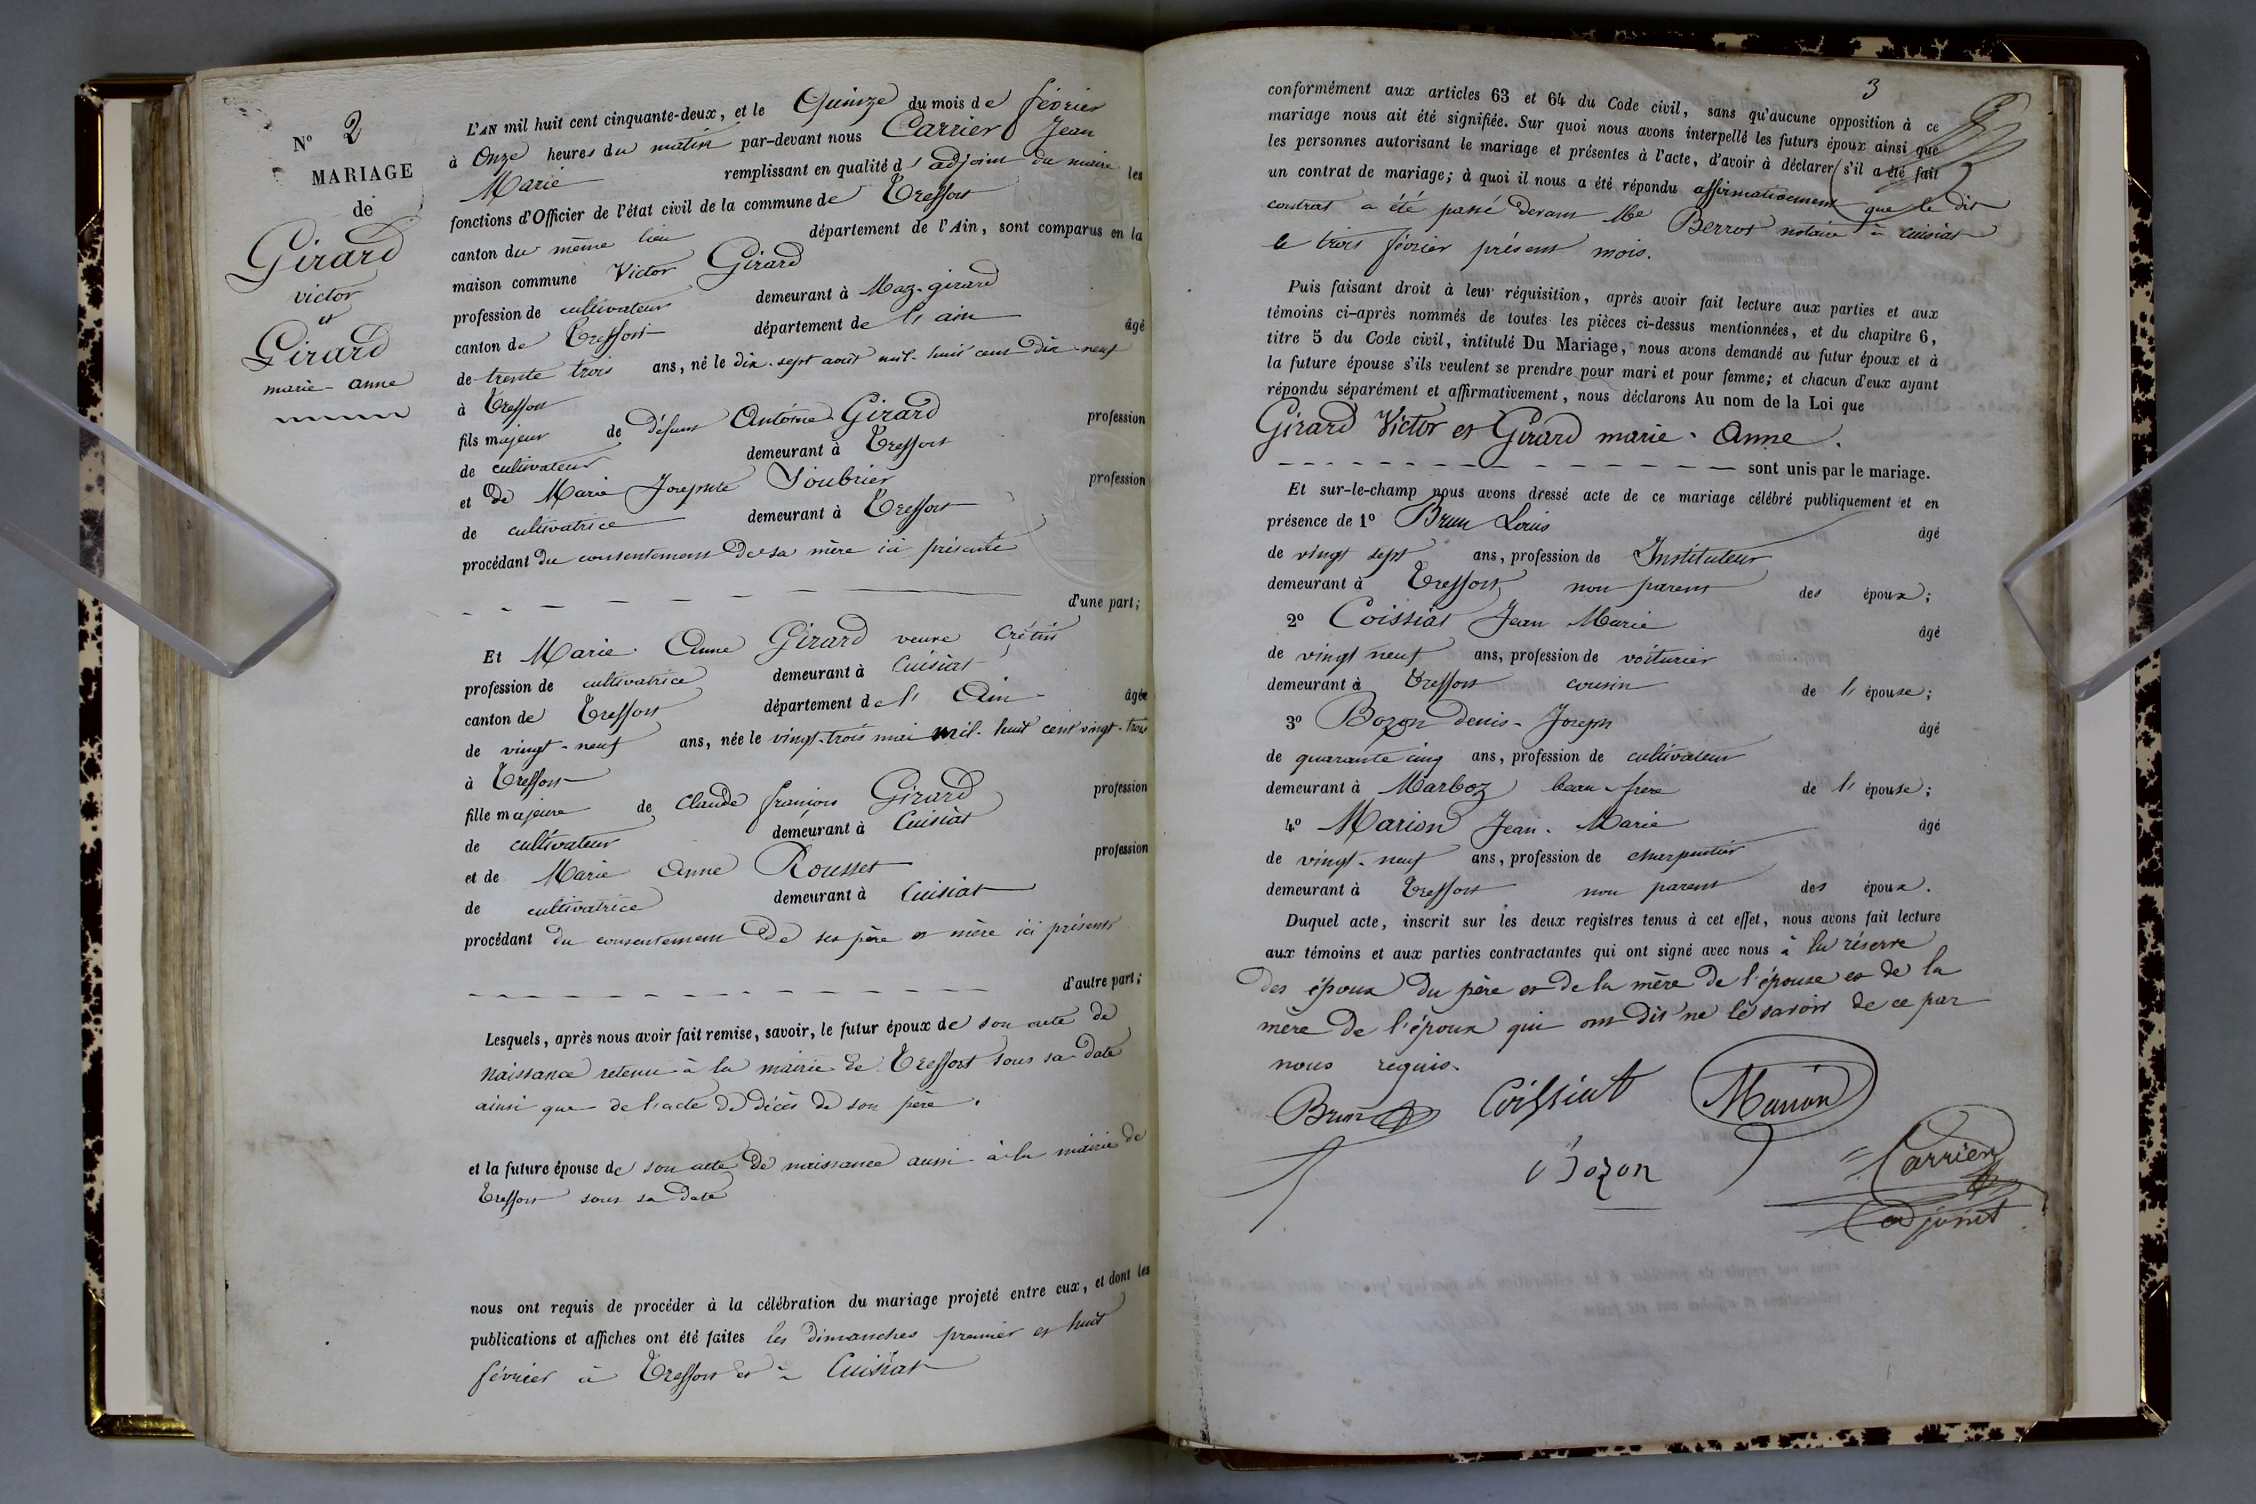 N° 2
MARIAGE
de
Girard
victor
et
Girard
marie-anne
L'AN mil huit cent cinquante-deux, et le Quinze du mois de février
à Onze heures du matin par-devant nous Carrier Jean
Marie remplissant en qualité d'adjoint du maire les
fonctions d'Officier de l'état civil de la commune de Treffort
canton du même lieu département de l'Ain, sont comparus en la
maison commune Victor Girard
profession de cultivateur demeurant à Maz-girard
canton de Treffort département de l'ain âgé
de trente trois ans, né le dix-sept août mil-huit cent dix-neuf
à Treffort
fils majeur de défunt Antoine Girard profession
de cultivateur demeurant à Treffort
et de Marie Josephte Soubrier profession
de cultivatrice demeurant à Treffort
procédant du consentement de sa mère ici présente
d'une part;
Et Marie Anne Girard veuve Crétin
profession de cultivatrice demeurant à Cuisiat
canton de Treffort département de l'Ain âgée
de vingt-neuf ans, née le vingt-trois mai mil-huit cent vingt-trois
à Treffort
fille majeure de Claude françois Girard profession
de cultivateur demeurant à Cuisiat
et de Marie Anne Rousset profession
de cultivatrice demeurant à Cuisiat
procédant du consentement de ses père et mère ici présents
d'autre part;
Lesquels, après nous avoir fait remise, savoir, le futur époux de son acte de
naissance retenu à la mairie de Treffort sous sa date
ainsi que de l'acte de décès de son père.
et la future épouse de son acte de naissance aussi à la mairie de
Treffort sous sa date
nous ont requis de procéder à la célébration du mariage projeté entre eux, et dont les
publications et affiches ont été faites les dimanches premier et huit
février à Treffort et à Cuisiat
3
conformément aux articles 63 et 64 du Code civil, sans qu'aucune opposition à ce
mariage nous ait été signifiée. Sur quoi nous avons interpellé les futurs époux ainsi que
les personnes autorisant le mariage et présentes à l'acte, d'avoir à déclarer s'il a été fait
un contrat de mariage; à quoi il nous a été répondu affirmativement que le dit
contrat a été passé devant Me Berrot notaire à cuisiat
le trois février présent mois.
Puis faisant droit à leur réquisition, après avoir fait lecture aux parties et aux
témoins ci-après nommés de toutes les pièces ci-dessus mentionnées, et du chapitre 6,
titre 5 du Code civil, intitulé Du Mariage, nous avons demandé au futur époux et à
la future épouse s'ils veulent se prendre pour mari et pour femme; et chacun d'eux ayant
répondu séparément et affirmativement, nous déclarons Au nom de la Loi que
Girard Victor et Girard marie-Anne.
sont unis par le mariage.
Et sur-le-champ nous avons dressé acte de ce mariage célébré publiquement et en
présence de 1° Brun Louis âgé
de vingt sept ans, profession de Instituteur
demeurant à Treffort non parent des époux;
2° Coissiat Jean Marie âgé
de vingt neuf ans, profession de voiturier
demeurant à Treffort cousin de l'épouse;
3° Bozon denis-Joseph âgé
de quarante cinq ans, profession de cultivateur
demeurant à Marboz beau-frère de l'épouse;
4° Marion Jean-Marie âgé
de vingt-neuf ans, profession de charpentier
demeurant à Treffort non parent des époux.
Duquel acte, inscrit sur les deux registres tenus à cet effet, nous avons fait lecture
aux témoins et aux parties contractantes qui ont signé avec nous à la réserve
des époux du père et de la mère de l'épouse et de la
mère de l'époux qui ont dit ne le savoir de ce par
nous requis.
Brun Coissiat Marion
Bozon Carrier
adjoint